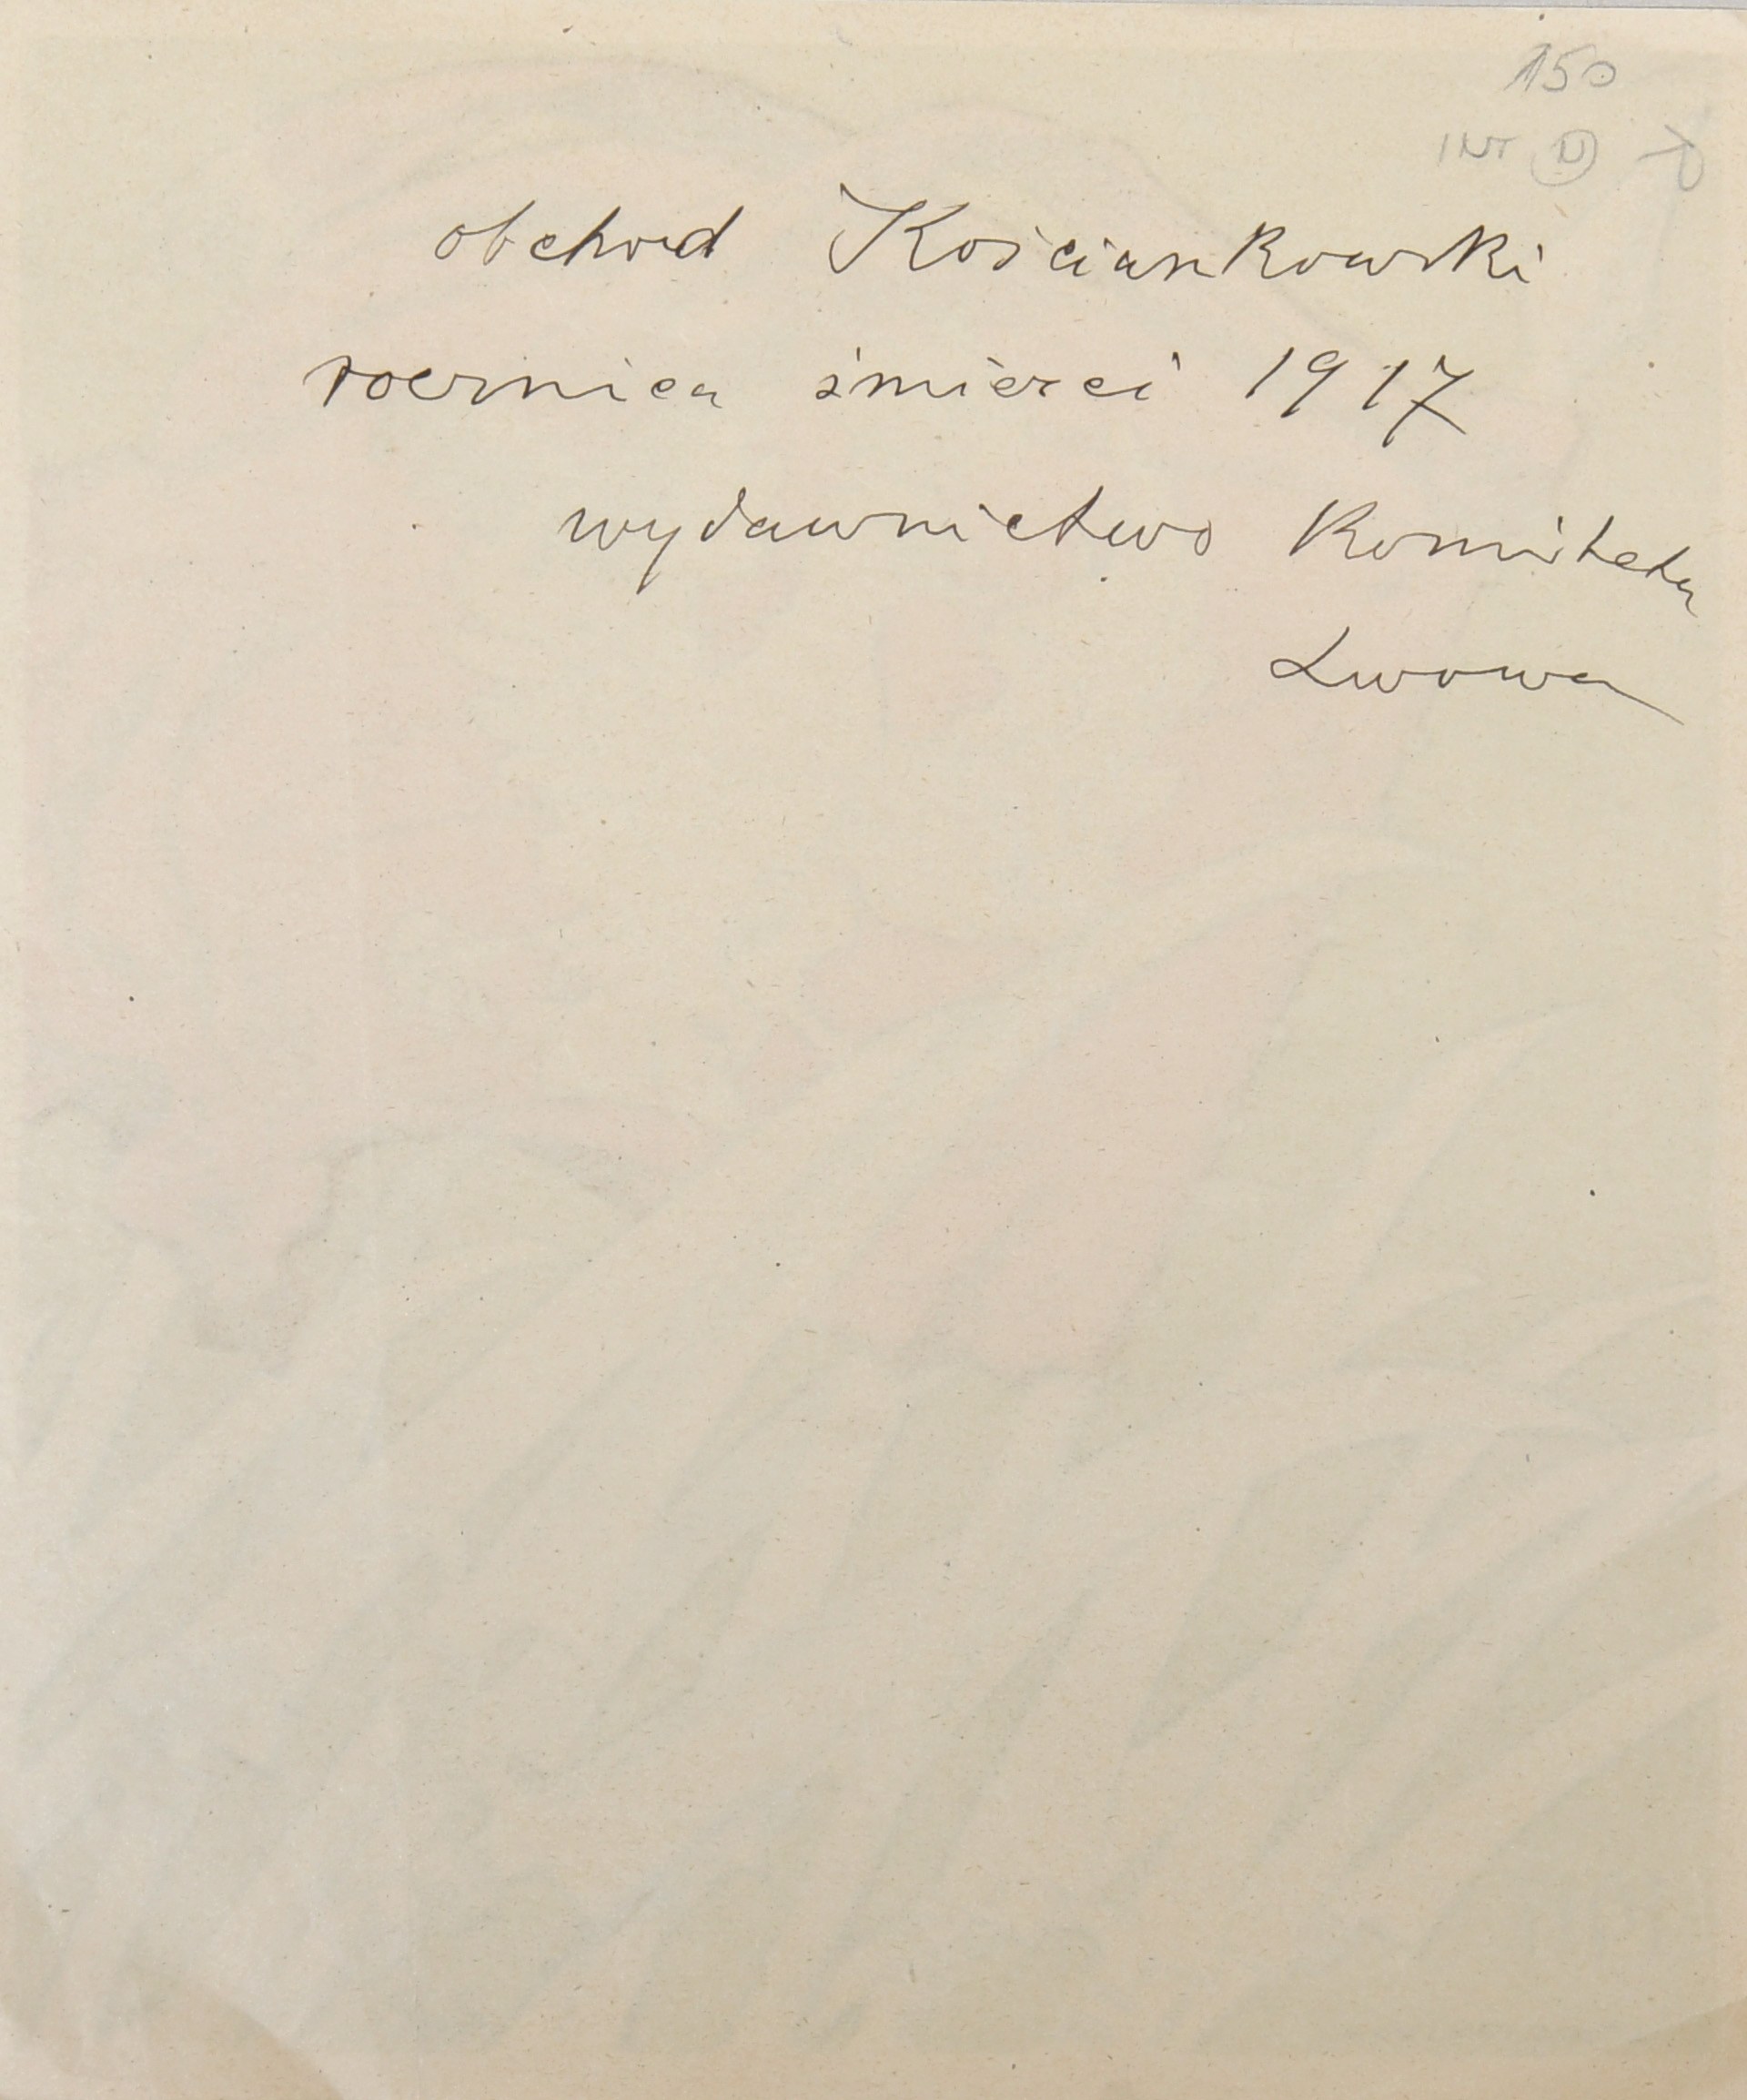 150
INT N
obchod Kościankowski
rocznica śmierci 1917
wydawnictwo Komitetu
Lwowa